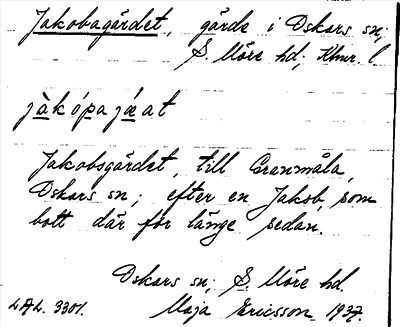 Jakobagärdet, gärde i Oskars sn;
S. Möre hd; Klmr. l
jàkópajæat
Jakobsgärdet, till Granmåla,
Oskars sn; efter en Jakob, som
bott där för länge sedan.
Oskars sn; S. Möre hd.
LAL. 3301. Maja Ericsson 1937.